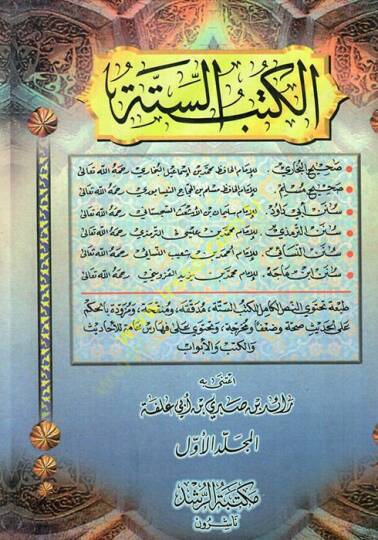 الكتب الستة
صحيح البخاري. للإمام الحافظ محمد بن إسماعيل البخاري رحمه الله تعالى
صحيح مسلم. للإمام الحافظ مسلم بن الحجاج النيسابوري رحمه الله تعالى
سنن أبي داود. للإمام سليمان بن الأشعث السجستاني رحمه الله تعالى
سنن الترمذي. للإمام محمد بن عيسى الترمذي رحمه الله تعالى
سنن النسائي. للإمام أحمد بن شعيب النسائي رحمه الله تعالى
سنن ابن ماجة. للإمام محمد بن يزيد القزويني رحمه الله تعالى
طبعة تحتوي النص الكامل للكتب الستة، مدققة، ومنقحة، ومزودة بالحكم
على الحديث صحة وضعفا ومخرجة، وتحتوي على فهارس عامة للأحاديث
والكتب والأبواب
اعتنى به
رائد بن صبري بن أبي علفة
المجلد الأول
مكتبة الرشد
ناشرون